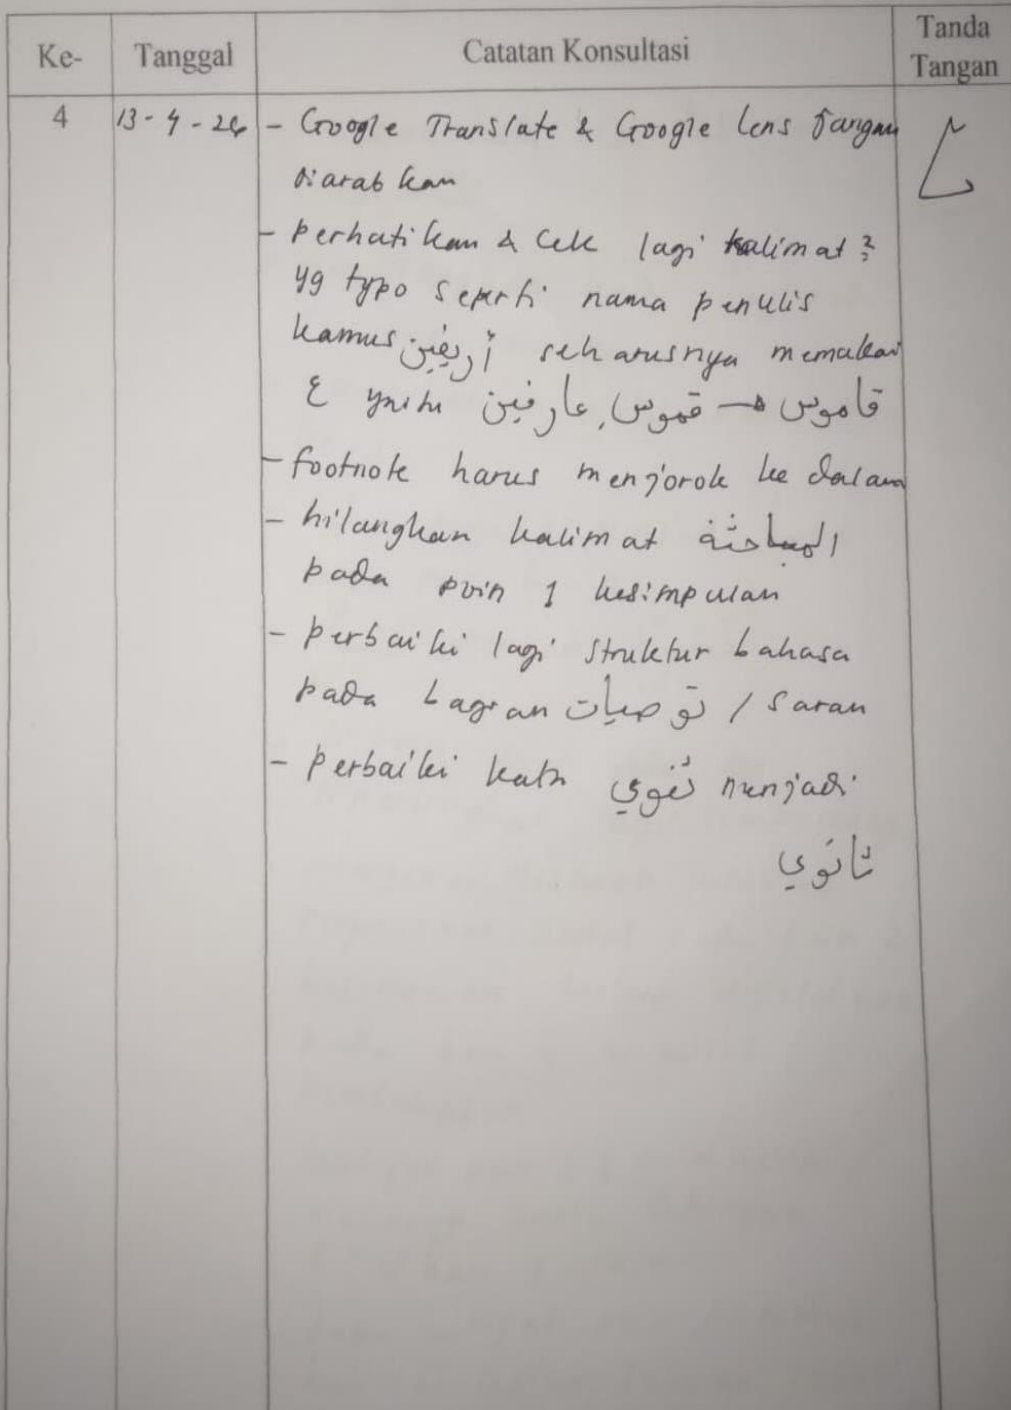 Ke- Tanggal Catatan Konsultasi Tanda Tangan
4 13-4-26 - Google Translate & Google Lens Jangan
diarabkan
- perhatikan & Cek lagi kalimat²
yg typo seperti nama penulis
kamus أريفين seharusnya memakai
ع yaitu عارفين, قموس → قاموس
- footnote harus menjorok ke dalam
- hilangkan kalimat المباحثة
pada poin 1 kesimpulan
- perbaiki lagi struktur bahasa
pada bagian توصيات / saran
- perbaiki kata ثنوي menjadi
ثانوي